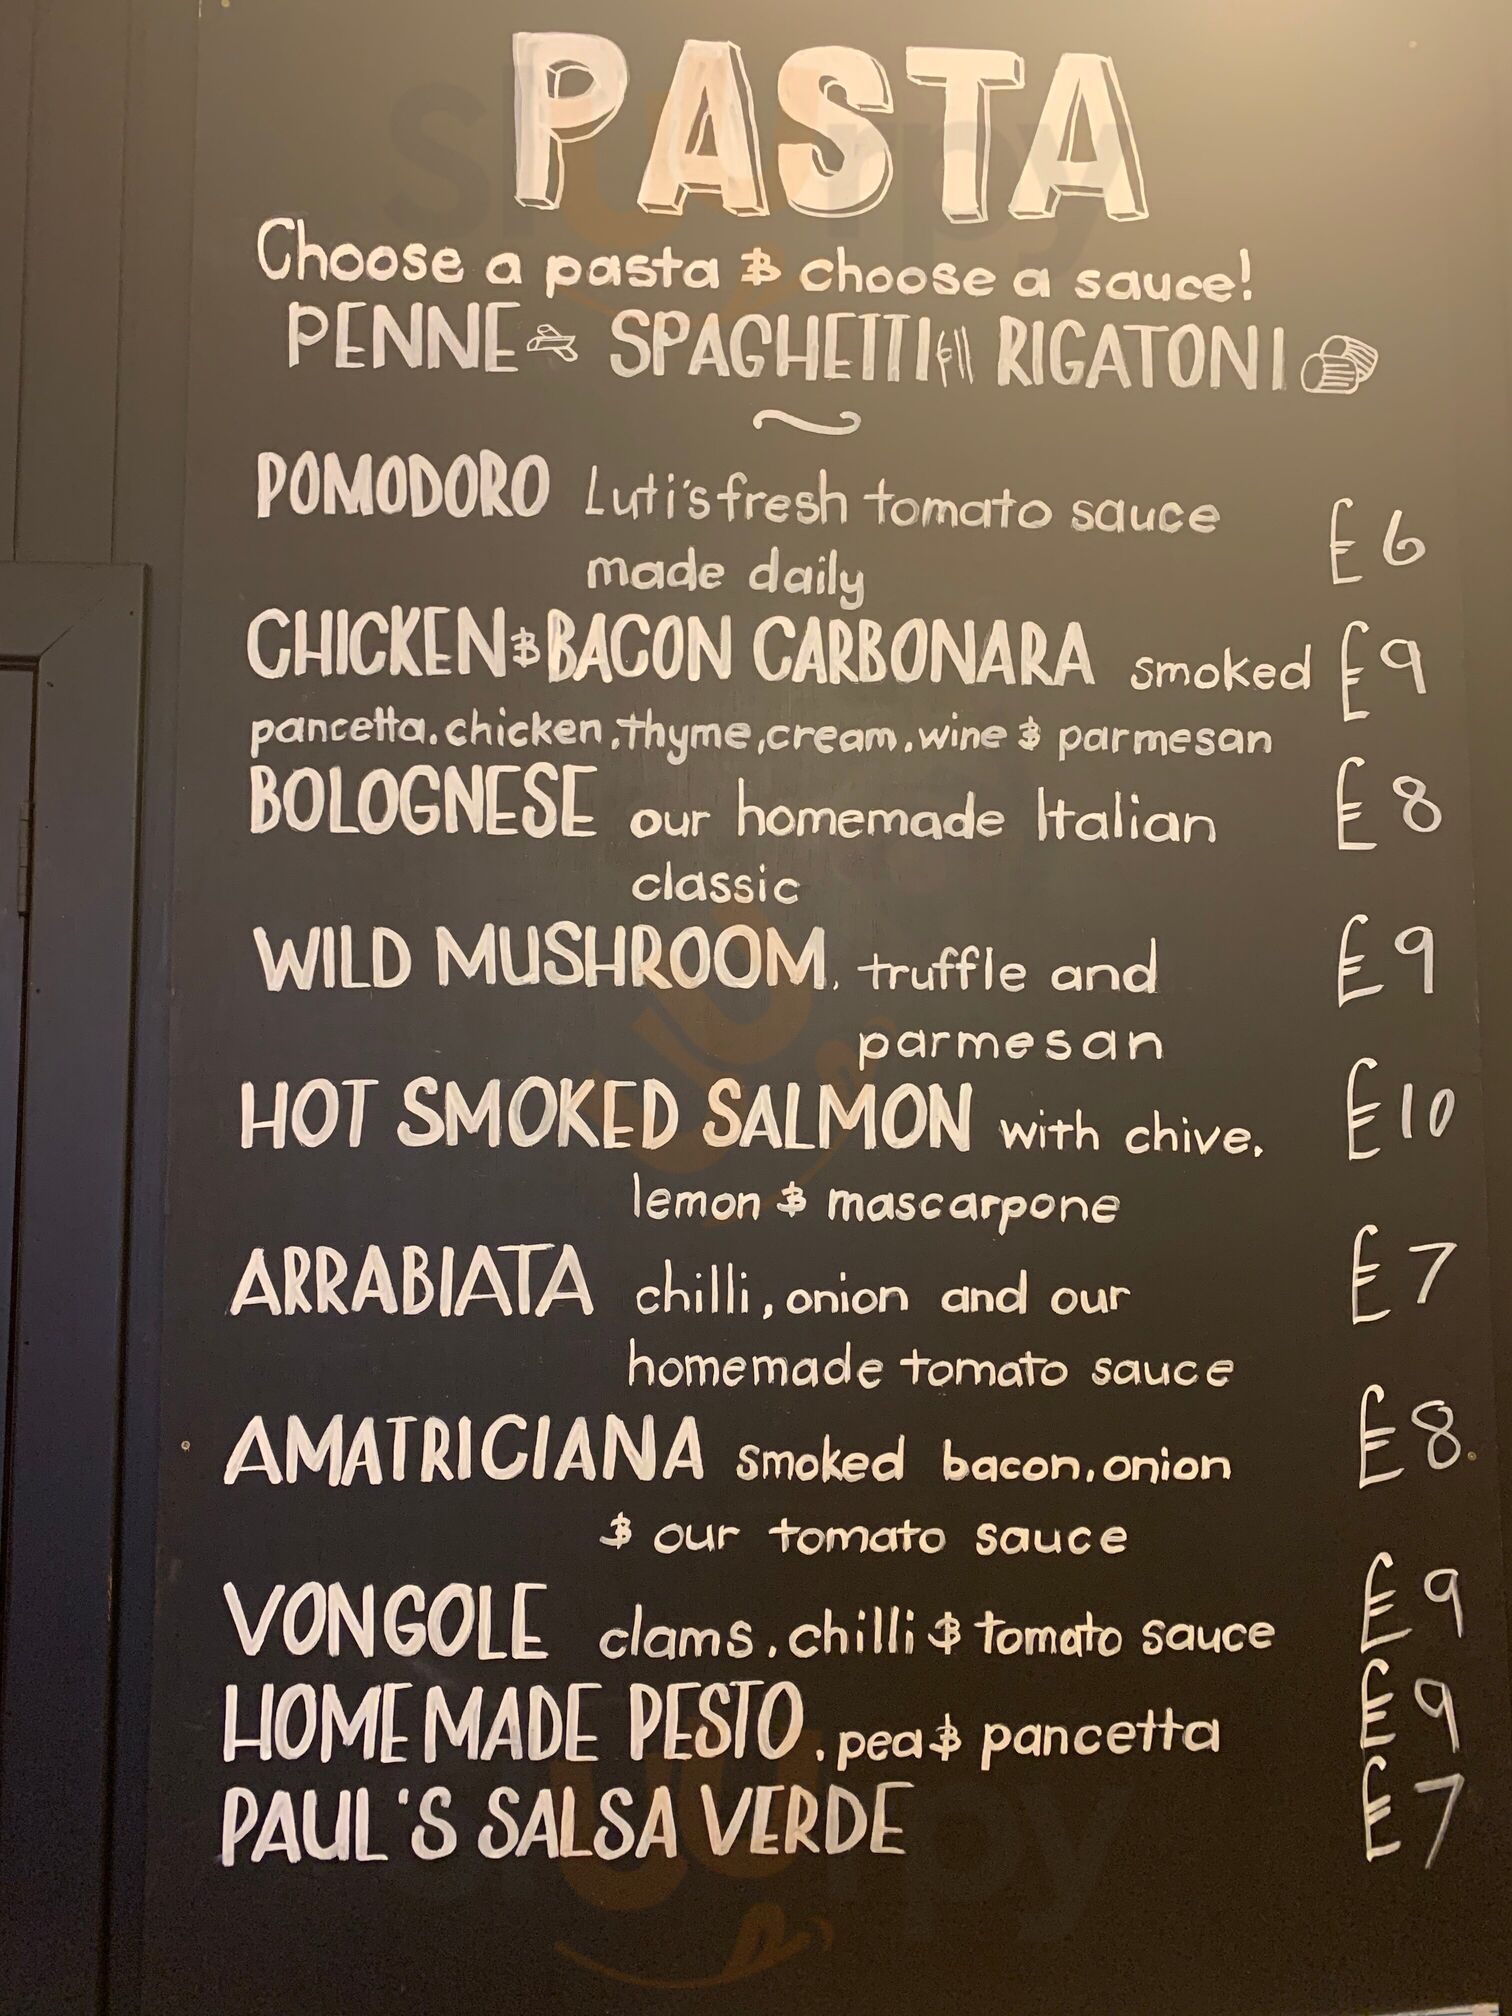 PASTA
Choose a pasta & choose a sauce!
PENNE SPAGHETTI RIGATONI
POMODORO Luti's fresh tomato sauce £6
made daily
CHICKEN & BACON CARBONARA smoked £9
pancetta, chicken, thyme, cream, wine & parmesan
BOLOGNESE our homemade Italian £8
classic
WILD MUSHROOM, truffle and £9
parmesan
HOT SMOKED SALMON with chive, £10
lemon & mascarpone
ARRABIATA chilli, onion and our £7
homemade tomato sauce
AMATRICIANA smoked bacon, onion £8
& our tomato sauce
VONGOLE clams, chilli & tomato sauce £9
HOMEMADE PESTO, pea & pancetta £9
PAUL'S SALSA VERDE £7